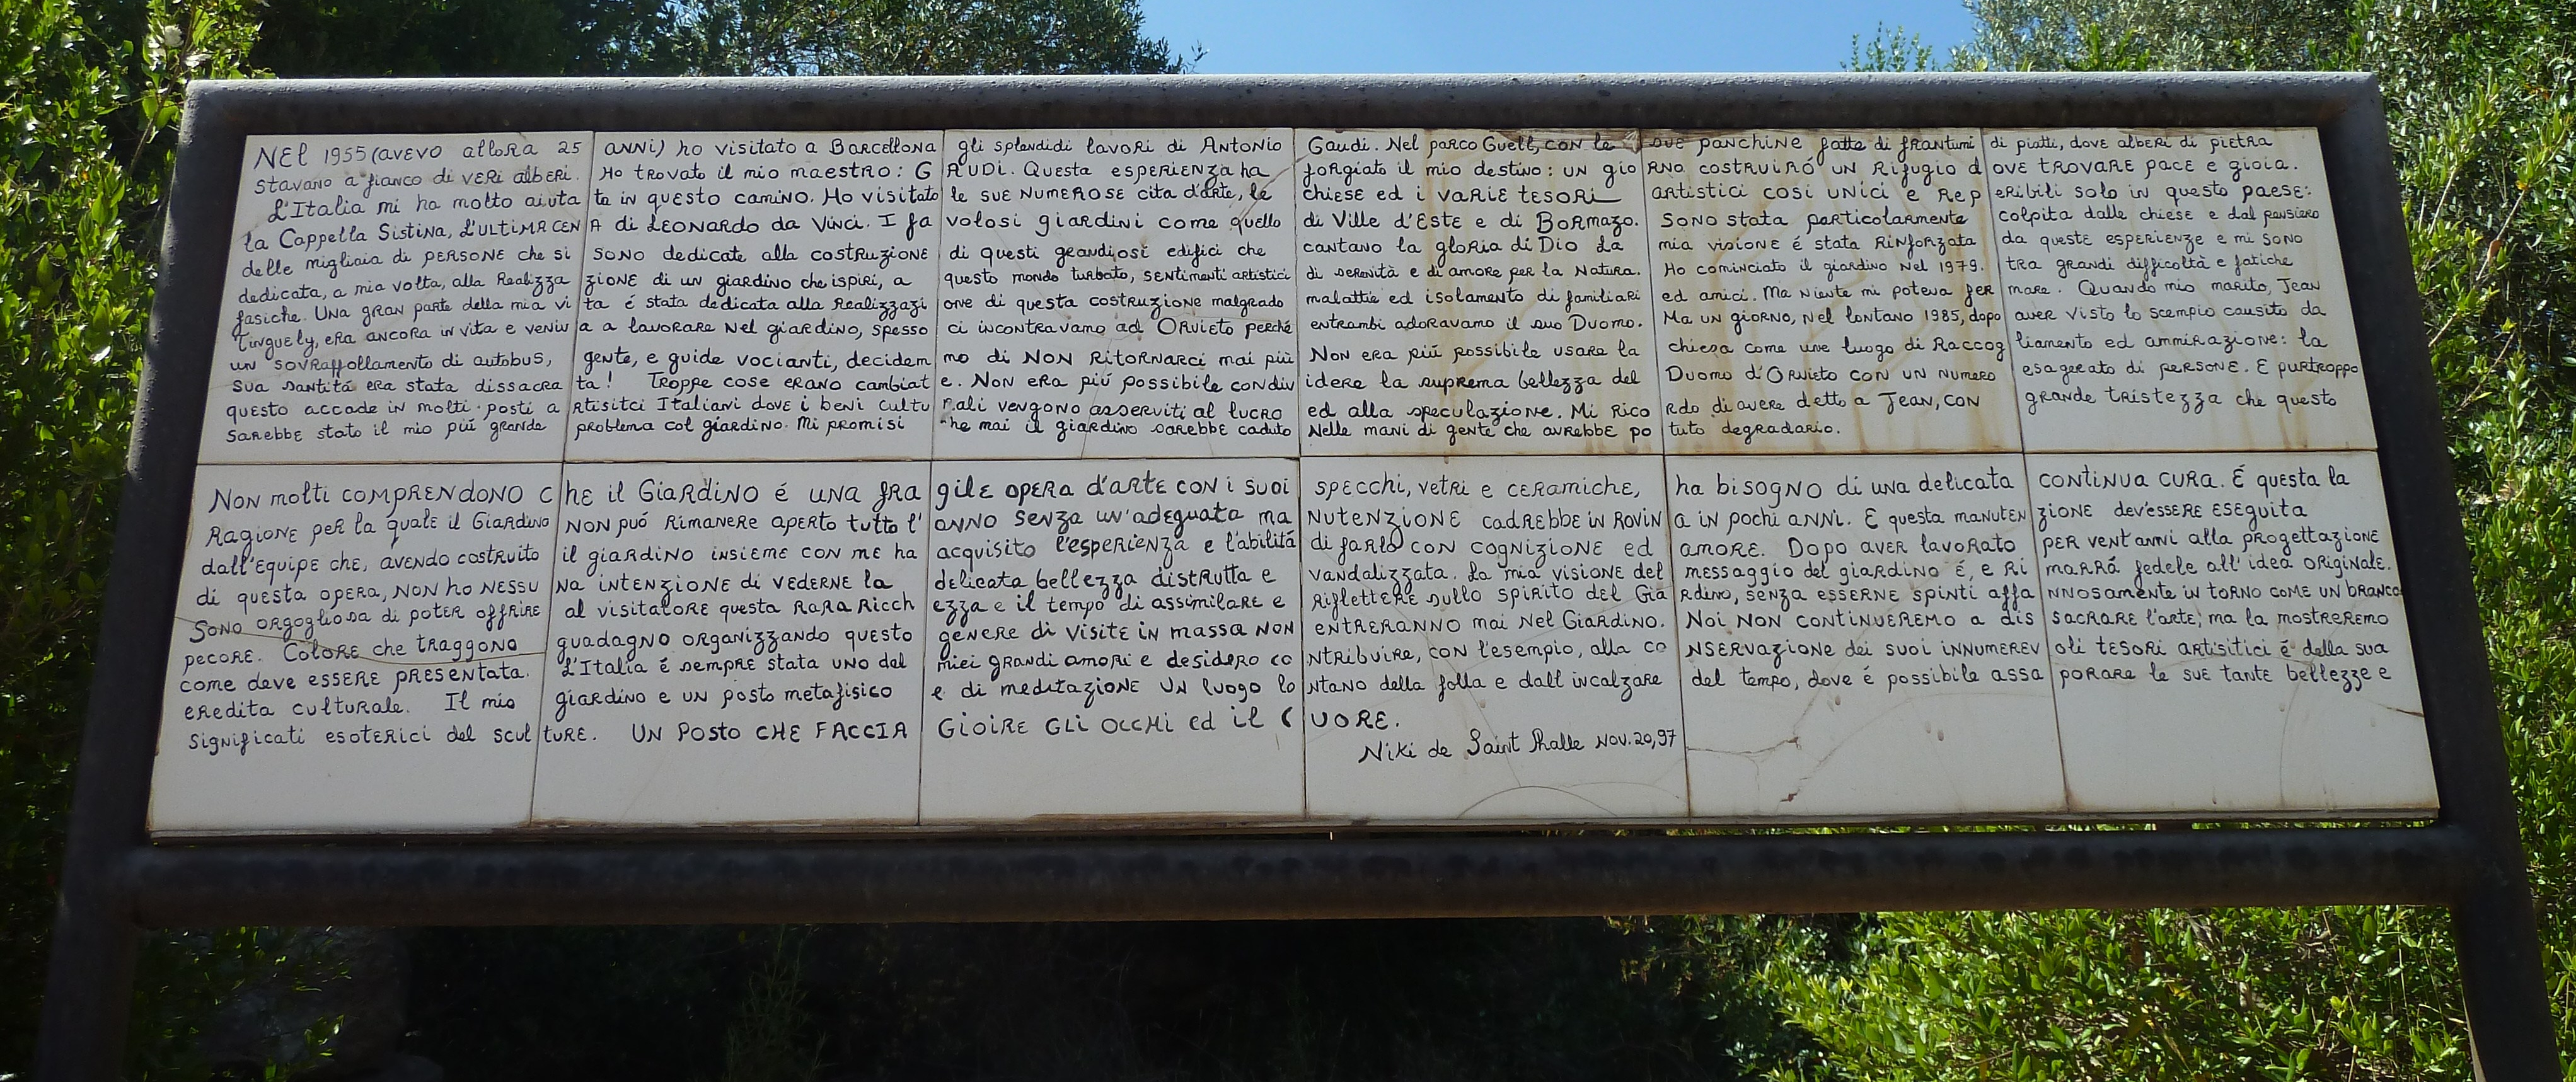 NEL 1955 (avevo allora 25 ANNI) ho visitato a Barcellona gli splendidi lavori di Antonio Gaudi. Nel parco Guell, con le sue panchine fatte di frantumi di piatti, dove alberi di pietra
stavano a fianco di veri alberi. Ho trovato il mio maestro: GAUDI. Questa esperienza ha forgiato il mio destino: un giorno costruiró un Rifugio dove trovare pace e gioia.
L'Italia mi ha molto aiutata in questo camino. Ho visitato le sue numerose cita d'arte, le chiese ed i varie tesori artistici cosi unici e Reperibili solo in questo paese:
la Cappella Sistina, l'ultima cena di Leonardo da Vinci. I favolosi giardini come quello di Ville d'Este e di Bormazo. Sono stata particolarmente colpita dalle chiese e dal pensiero
delle migliaia di persone che si sono dedicate alla costruzione di questi grandiosi edifici che cantano la gloria di Dio la mia visione é stata rinforzata da queste esperienze e mi sono
dedicata, a mia volta, alla Realizzazione di un giardino che ispiri, a questo mondo turbato, sentimenti artistici di serenità e di amore per la Natura. Ho cominciato il giardino nel 1979. tra grandi difficoltà e fatiche
fasiche. Una gran parte della mia vita é stata dedicata alla Realizzazione di questa costruzione malgrado malattie ed isolamento di familiari ed amici. Ma niente mi poteva fermare. Quando mio marito, Jean
Tinguely, era ancora in vita e veniva a lavorare nel giardino, spesso ci incontravamo ad Orvieto perché entrambi adoravamo il suo Duomo. Ma un giorno, nel lontano 1985, dopo aver visto lo scempio causito da
un sovraffollamento di autobus, gente, e guide vocianti, decidemmo di NON ritornarci mai più Non era piú possibile usare la chiesa come une luogo di Raccogliamento ed ammirazione: la
sua santitá era stata dissacrata! Troppe cose erano cambiate. Non era piú possibile condividere la suprema bellezza del Duomo d'Orvieto con un numero esagerato di persone. E purtroppo
questo accade in molti posti artisitci Italiani dove i beni culturali vengono asserviti al lucro ed alla speculazione. Mi ricordo di avere detto a Jean, con grande tristezza che questo
sarebbe stato il mio piú grande problema col giardino. Mi promisi che mai il giardino sarebbe caduto nelle mani di gente che avrebbe potuto degradario.
Non molti comprendono che il Giardino é una fragile opera d'arte con i suoi specchi, vetri e ceramiche, ha bisogno di una delicata continua cura. É questa la
Ragione per la quale il Giardino non puó rimanere aperto tutto l'anno senza un'adeguata manutenzione cadrebbe in rovina in pochi anni. E questa manutenzione dev'essere eseguita
dall'equipe che, avendo costruito il giardino insieme con me ha acquisito l'esperienza e l'abilitá di farlo con cognizione ed amore. Dopo aver lavorato per vent'anni alla progettazione
di questa opera, non ho nessuna intenzione di vederne la delicata bellezza distrutta e vandalizzata. La mia visione del messaggio del giardino é, e rimarrá fedele all'idea originale.
Sono orgogliosa di poter offrire al visitatore questa rara ricchezza e il tempo di assimilare e riflettere sullo spirito del Giardino, senza esserne spinti affannosamente in torno come un branco
pecore. Colore che traggono guadagno organizzando questo genere di visite in massa non entreranno mai nel Giardino. Noi non continueremo a dissacrare l'arte; ma la mostreremo
come deve essere presentata. L'Italia é sempre stata uno dei miei grandi amori e desidero contribuire, con l'esempio, alla conservazione dei suoi innumerevoli tesori artisitici é della sua
eredita culturale. Il mio giardino e un posto metafisico e di meditazione un luogo lontano della folla e dall incalzare del tempo, dove é possibile assaporare le sue tante bellezze e
significati esoterici del sculture. UN POSTO CHE FACCIA GIOIRE GLI OCCHI ed il CUORE.
Niki de Saint Phalle Nov. 20, 97